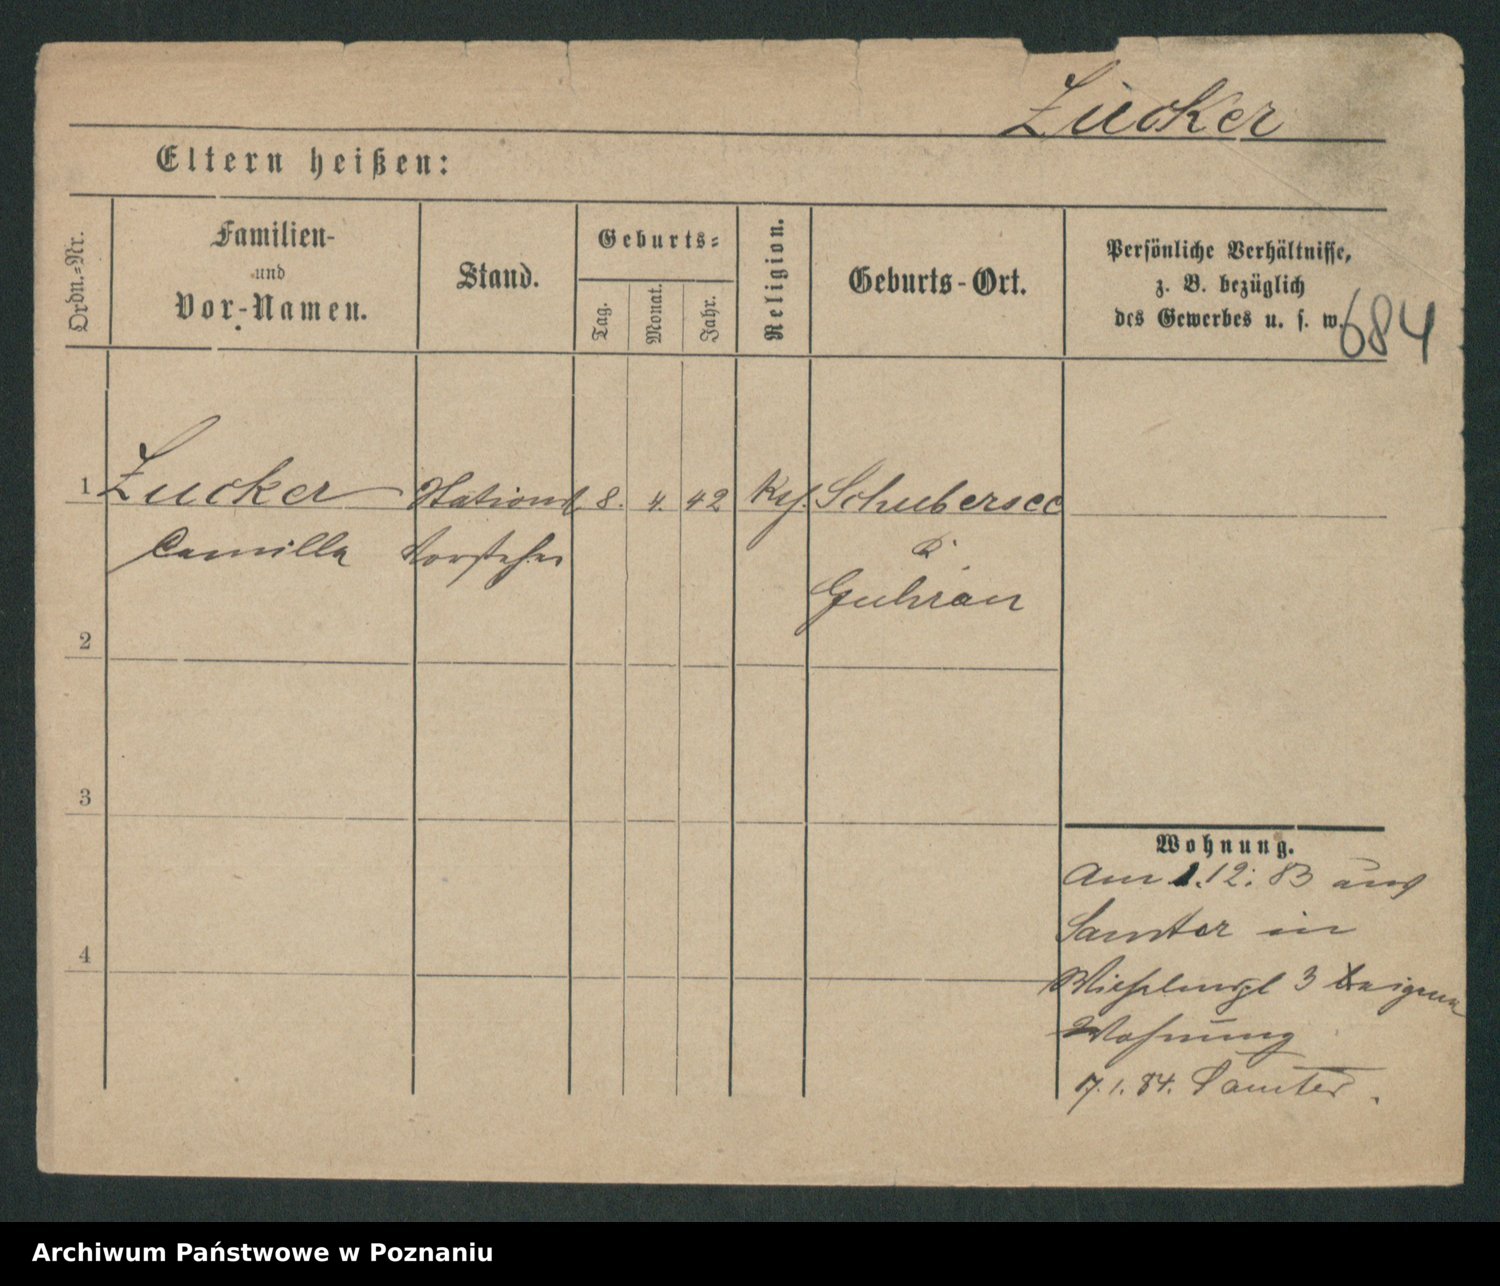 Zucker
Eltern heißen:
Ordn.=Nr.
Familien-
und
Vor-Namen.
Stand.
Geburts=
Tag.
Monat.
Jahr.
Religion.
Geburts-Ort.
Persönliche Verhältnisse,
z. B. bezüglich
des Gewerbes u. s. w.
684
1 Zucker Stations 8. 4. 42 Schubersee
Camilla Vorsteher
Guhrau
2
3
4
Wohnung.
Am 1.12.83 aus
Samter in
3
Wohnung
7.1.84. Samter.